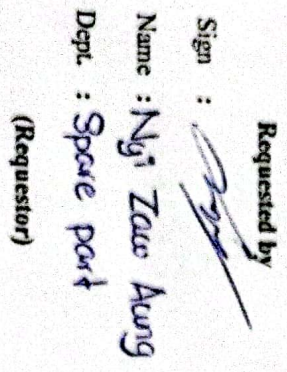 Requested by
Sign :
Name : Nyi Zaw Aung
Dept. : Spare part
(Requestor)